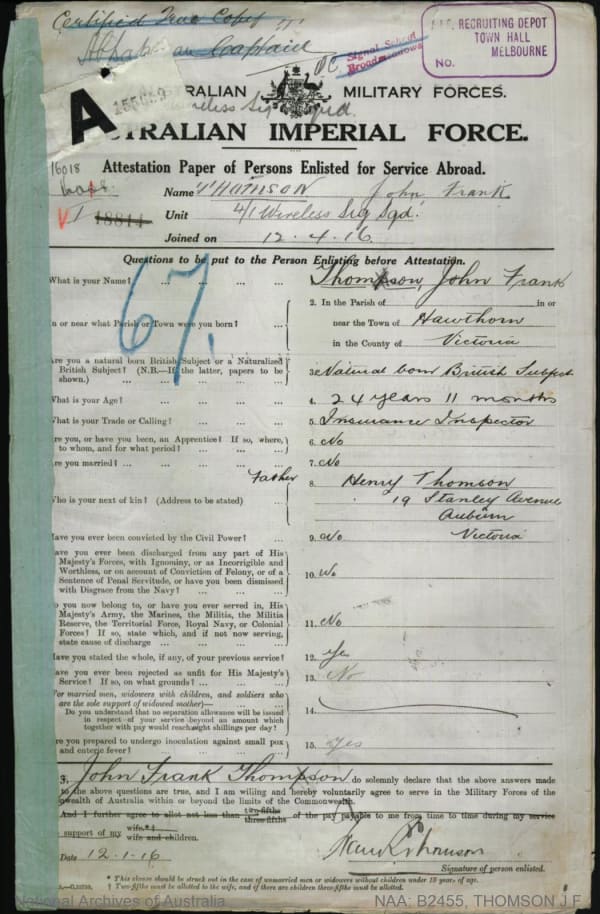 Certified True Copy
Captain
A.I.F. RECRUITING DEPOT
TOWN HALL
MELBOURNE
NO.
Signal School
Broadmeadows
A
RALIAN MILITARY FORCES.
Wireless Sig Sqd.
TRALIAN IMPERIAL FORCE.
16018
Attestation Paper of Persons Enlisted for Service Abroad.
Name THOMSON John Frank
18814
Unit 4/1 Wireless Sig Sqd.
Joined on 12.4.16
Questions to be put to the Person Enlisting before Attestation.
67.
What is your Name? ... ... ... ... Thompson, John Frank
2. In the Parish of in or
In or near what Parish or Town were you born? ... near the Town of Hawthorn
in the County of Victoria
Are you a natural born British Subject or a Naturalized
British Subject? (N.B.—If the latter, papers to be
shown.) ... ... ... ... 3. Natural born British Subject
What is your Age? ... ... ... ... 4. 24 years 11 months
What is your Trade or Calling? ... ... ... 5. Insurance Inspector
Are you, or have you been, an Apprentice? If so, where,
to whom, and for what period? ... ... ... 6. No
Are you married? ... ... ... ... 7. No
Father 8. Henry Thomson
Who is your next of kin? (Address to be stated) ... 19 Stanley Avenue
Auburn
Victoria
Have you ever been convicted by the Civil Power? ... 9. No
Have you ever been discharged from any part of His
Majesty's Forces, with Ignominy, or as Incorrigible and
Worthless, or on account of Conviction of Felony, or of a
Sentence of Penal Servitude, or have you been dismissed
with Disgrace from the Navy? ... ... 10. No
Do you now belong to, or have you ever served in, His
Majesty's Army, the Marines, the Militia, the Militia
Reserve, the Territorial Force, Royal Navy, or Colonial
Forces? If so, state which, and if not now serving,
state cause of discharge ... ... ... 11. No
Have you stated the whole, if any, of your previous service? 12. Yes
Have you ever been rejected as unfit for His Majesty's
Service? If so, on what grounds? ... ... 13. No
For married men, widowers with children, and soldiers who
are the sole support of widowed mother)—
Do you understand that no separation allowance will be issued
in respect of your service beyond an amount which
together with pay would reach eight shillings per day? 14.
Are you prepared to undergo inoculation against small pox
and enteric fever? ... ... ... ... 15. Yes
John Frank Thompson do solemnly declare that the above answers made
to the above questions are true, and I am willing and hereby voluntarily agree to serve in the Military Forces of the
wealth of Australia within or beyond the limits of the Commonwealth.
And I further agree to allot not less than two-fifths three-fifths of the pay payable to me from time to time during my service
support of my wife*† wife and children.
Date 12.1.16
Signature of person enlisted.
* This clause should be struck out in the case of unmarried men or widowers without children under 18 years of age.
† Two-fifths must be allotted to the wife, and if there are children three-fifths must be allotted.
National Archives of Australia
NAA: B2455, THOMSON J F